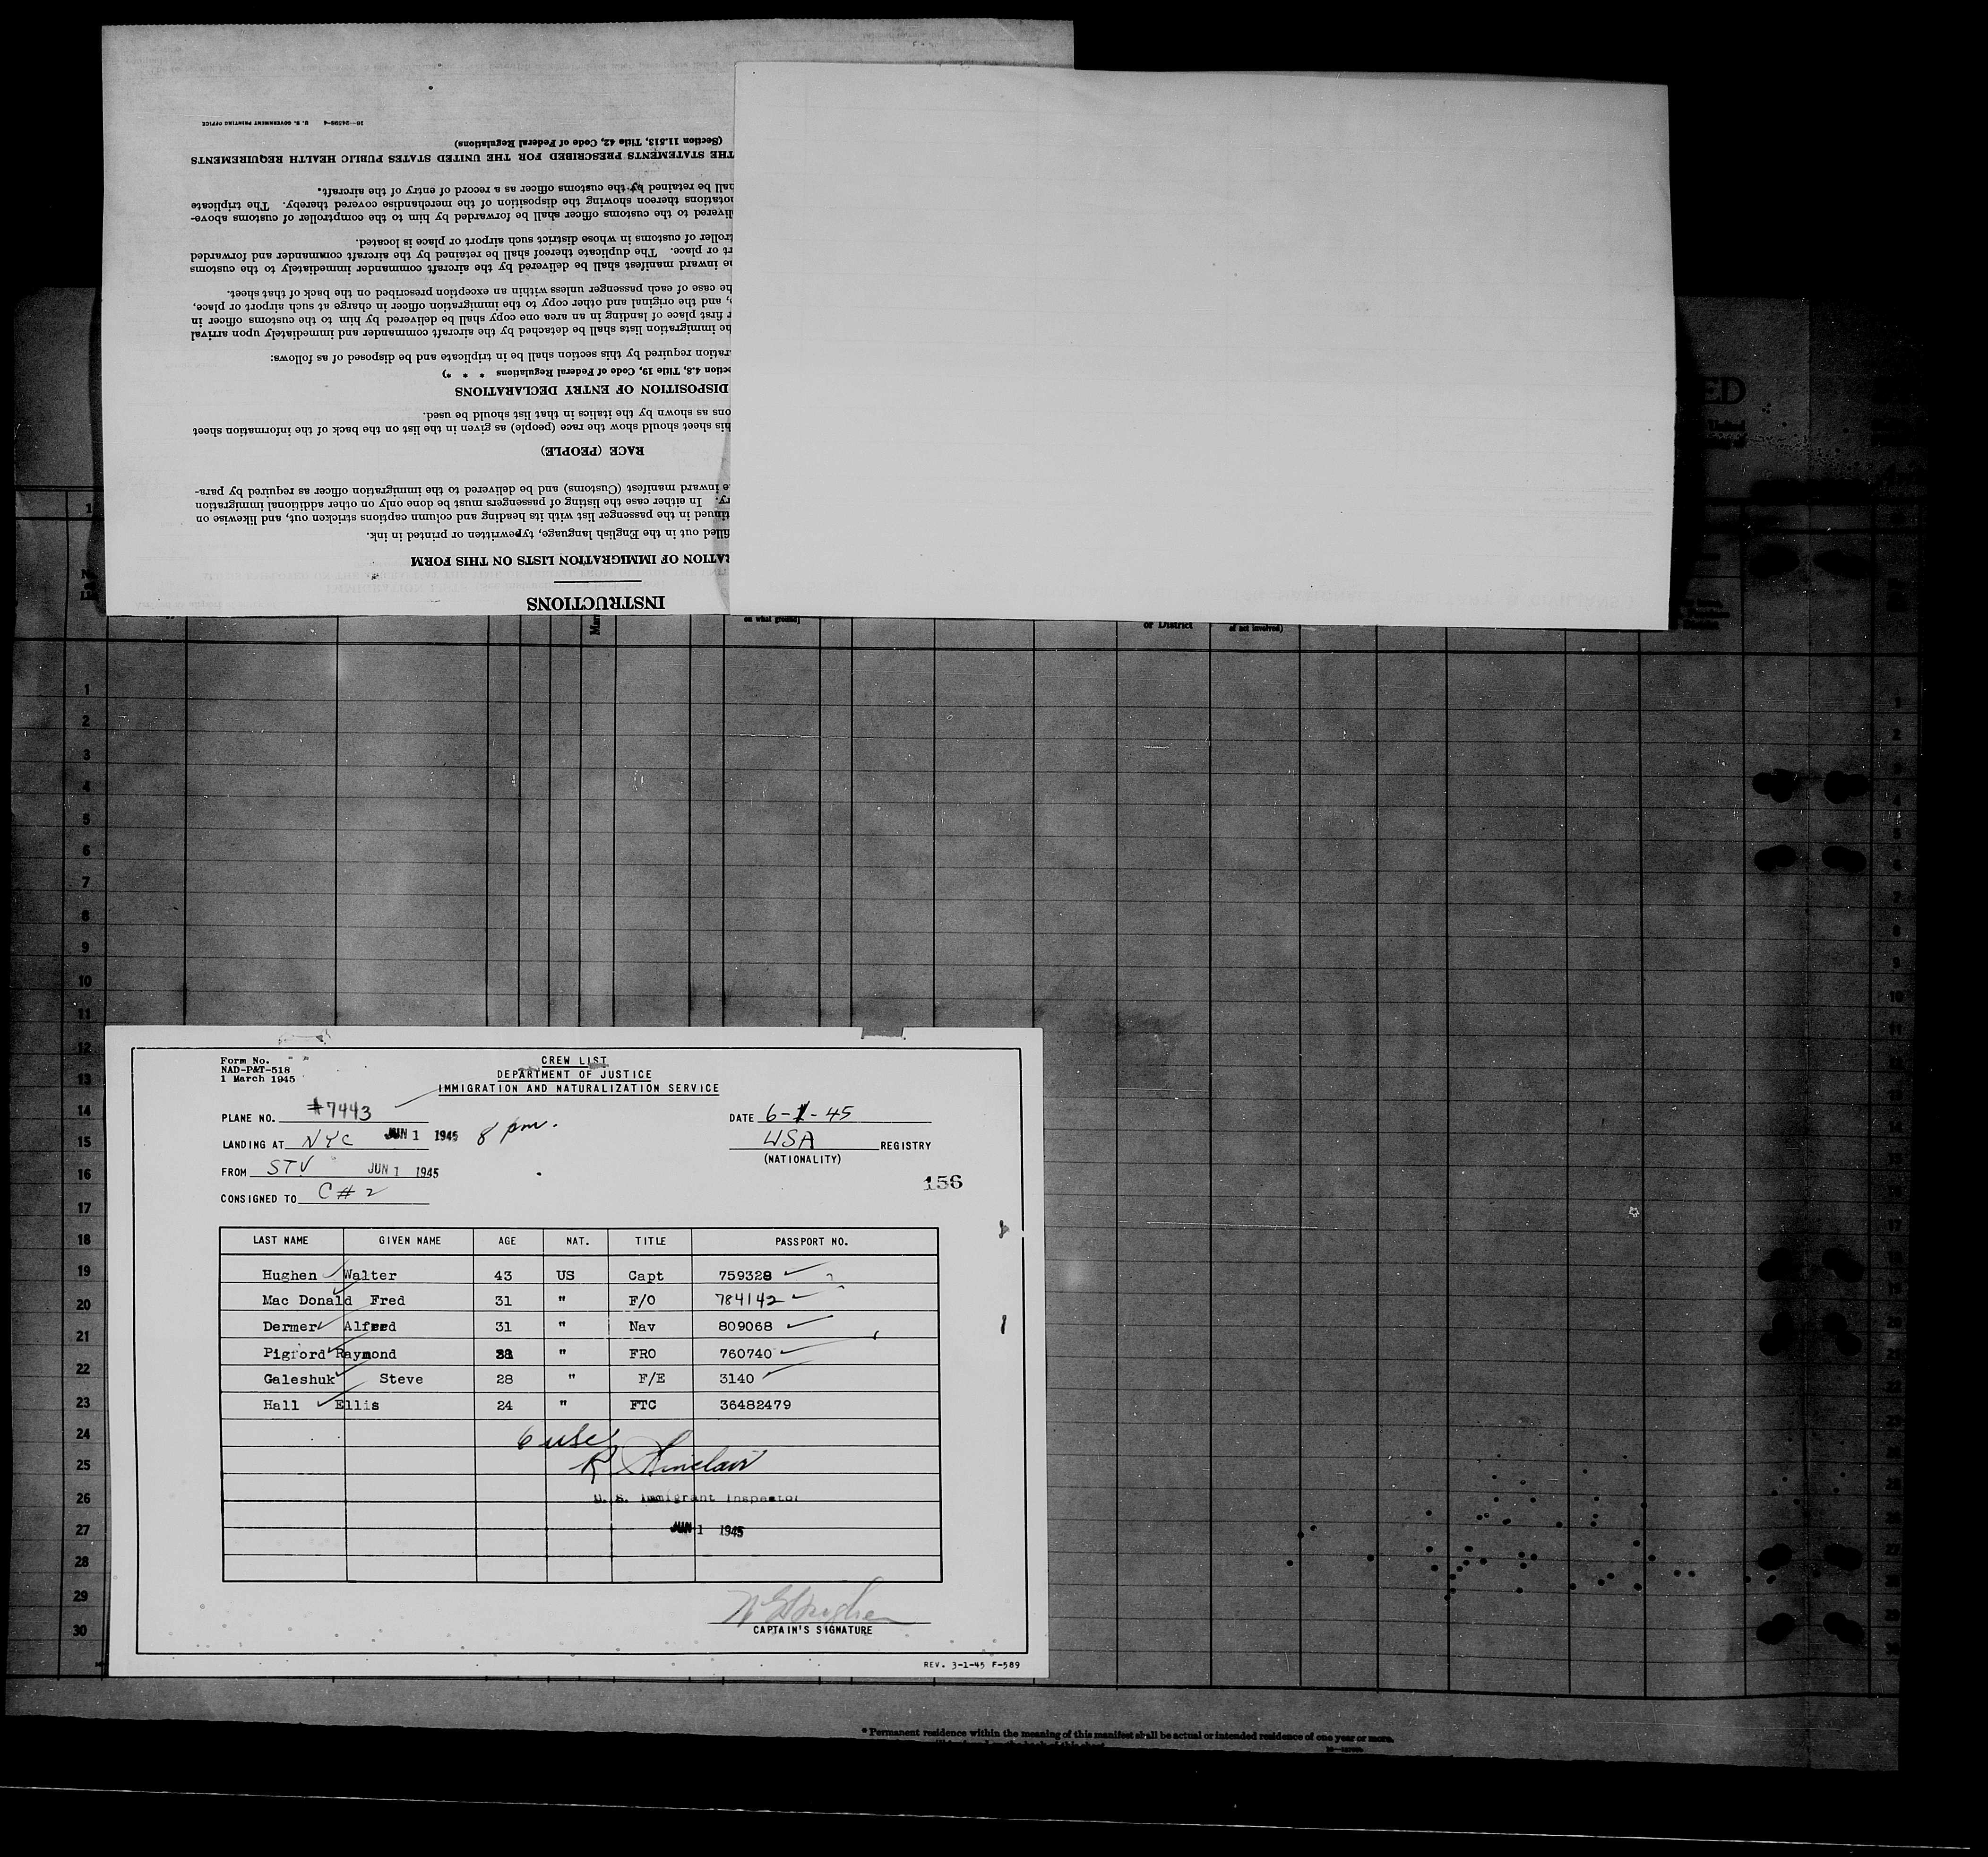 16—24598-4 U. S. GOVERNMENT PRINTING OFFICE
(Section 11.513, Title 42, Code of Federal Regulations)
THE STATEMENTS PRESCRIBED FOR THE UNITED STATES PUBLIC HEALTH REQUIREMENTS
hall be retained by the customs officer as a record of entry of the aircraft.
notations thereon showing the disposition of the merchandise covered thereby. The triplicate
livered to the customs officer shall be forwarded by him to the comptroller of customs above-
troller of customs in whose district such airport or place is located.
rt or place. The duplicate thereof shall be retained by the aircraft commander and forwarded
ne inward manifest shall be delivered by the aircraft commander immediately to the customs
he case of each passenger unless within an exception prescribed on the back of that sheet.
, and the original and other copy to the immigration officer in charge at such airport or place,
r first place of landing in an area one copy shall be delivered by him to the customs officer in
he immigration lists shall be detached by the aircraft commander and immediately upon arrival
ration required by this section shall be in triplicate and be disposed of as follows:
ection 4.8, Title 19, Code of Federal Regulations * * *)
DISPOSITION OF ENTRY DECLARATIONS
ons as shown by the italics in that list should be used.
his sheet should show the race (people) as given in the list on the back of the information sheet
RACE (PEOPLE)
e inward manifest (Customs) and be delivered to the immigration officer as required by para-
ry. In either case the listing of passengers must be done only on other additional immigration
tinued in the passenger list with its heading and column captions stricken out, and likewise on
filled out in the English language, typewritten or printed in ink.
RATION OF IMMIGRATION LISTS ON THIS FORM
INSTRUCTIONS
ED
Mar
on what ground]
or District
of act involved)
1
2
3
4
5
6
7
8
9
10
11
12
13
14
15
16
17
18
19
20
21
22
23
24
25
26
27
28
29
30
Form No.
NAD-P&T-518
1 March 1945
CREW LIST
DEPARTMENT OF JUSTICE
IMMIGRATION AND NATURALIZATION SERVICE
PLANE NO. #7443
DATE 6-1-45
LANDING AT NYC JUN 1 1945 8 pm.
USA REGISTRY
(NATIONALITY)
FROM STV JUN 1 1945
156
CONSIGNED TO C#2
LAST NAME GIVEN NAME AGE NAT. TITLE PASSPORT NO.
Hughen Walter 43 US Capt 759328
Mac Donald Fred 31 " F/O 784142
Dermer Alfred 31 " Nav 809068
Pigford Raymond " FRO 760740
Galeshuk Steve 28 " F/E 3140
Hall Ellis 24 " FTC 36482479
R Sinclair
U. S. Immigrant Inspector
JUN 1 1945
CAPTAIN'S SIGNATURE
REV. 3-1-45 F-589
* Permanent residence within the meaning of this manifest shall be actual or intended residence of one year or more.